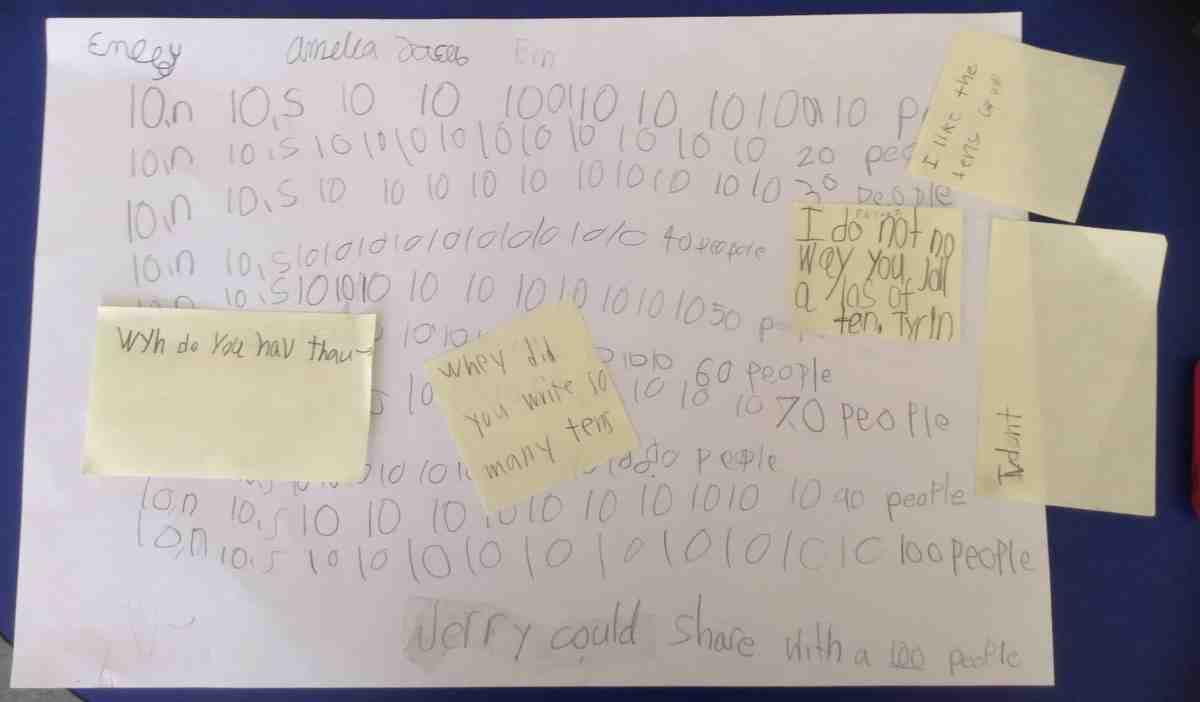 Eneegy Amelia Jacob Em
10,n 10,s 10 10 10 10 10 10 10 10 10
10,n 10,s 10 10 10 10 10 10 10 10 10 10 20 peo
10,n 10,s 10 10 10 10 10 10 10 10 10 10 30 people
10,n 10,s 10 10 10 10 10 10 10 10 10 10 40 people
10,s 10 10 10 10 10 10 10 10 10 10 50 p
10 10 10 10 60 people
10 10 10 10 70 people
10 10 10 people
10,n 10,s 10 10 10 10 10 10 10 10 10 10 90 people
10,n 10,s 10 10 10 10 10 10 10 10 10 10 100 people
Jerry could share with a 100 people
I like the
tens
I do not no
Way you
a of
ten. Tyrin
Wyh do You hav thau
Whey did
you write so
many tens
I dont